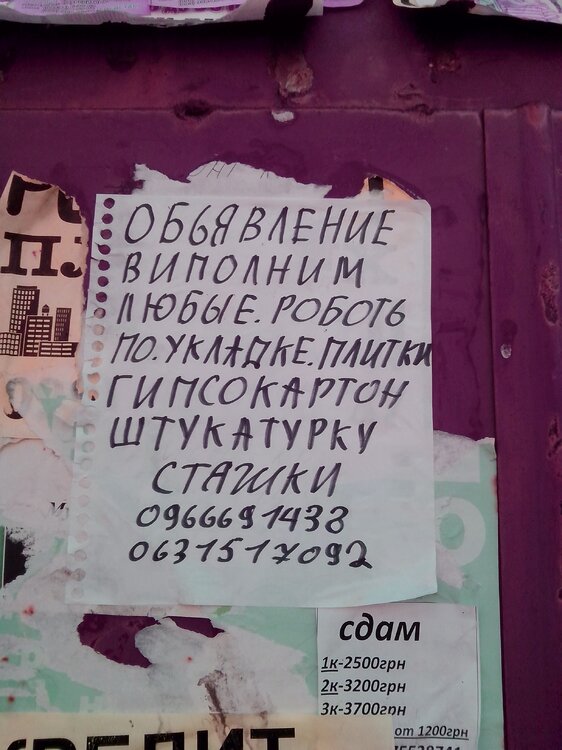 ОБЬЯВЛЕНИЕ
ВИПОЛНИМ
ЛЮБЫЕ. РОБОТЬ
ПО. УКЛАДКЕ. ПЛИТКИ
ГИПСОКАРТОН
ШТУКАТУРКУ
СТЯЖКИ
0966691438
0631517092
сдам
1к-2500грн
2к-3200грн
3к-3700грн
от 1200грн
КРЕДИТ